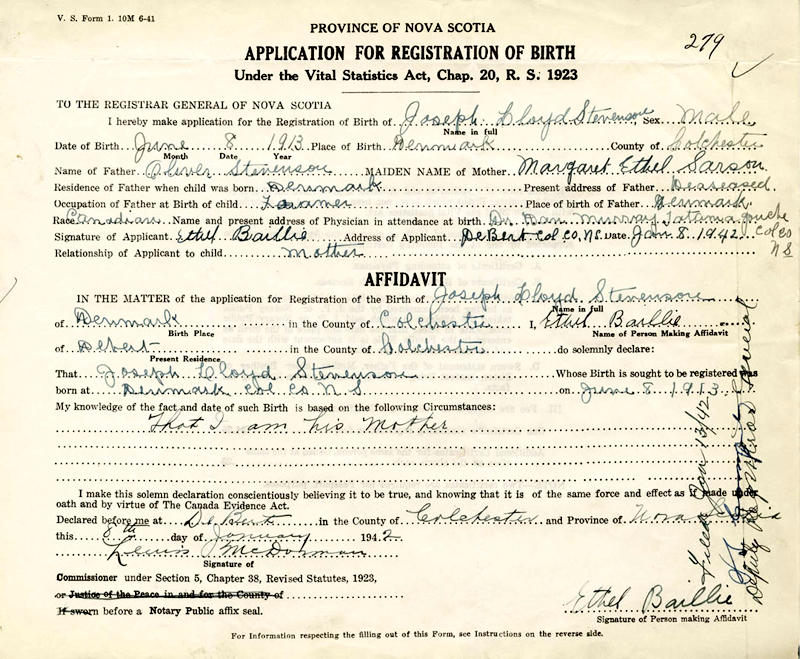 V. S. Form 1. 10M 6-41
PROVINCE OF NOVA SCOTIA
279
APPLICATION FOR REGISTRATION OF BIRTH
Under the Vital Statistics Act, Chap. 20, R. S. 1923
TO THE REGISTRAR GENERAL OF NOVA SCOTIA
I hereby make application for the Registration of Birth of Joseph Lloyd Stevenson Sex Male
Name in full
Date of Birth June 8 1913 Place of Birth Denmark County of Colchester
Month Date Year
Name of Father Oliver Stevenson MAIDEN NAME of Mother Margaret Ethel Sarson
Residence of Father when child was born Denmark Present address of Father Desseased
Occupation of Father at Birth of child Farmer Place of birth of Father Denmark
Race Canadian Name and present address of Physician in attendance at birth Dr. Dan Murray Tatamagouche
Signature of Applicant Ethel Baillie Address of Applicant DeBert Col. Co. N.S. Date Jan 8. 1942 Col Co
N S
Relationship of Applicant to child mother
AFFIDAVIT
IN THE MATTER of the application for Registration of the Birth of Joseph Lloyd Stevenson
Name in full
of Denmark in the County of Colchester I, Ethel Baillie
Birth Place Name of Person Making Affidavit
of Debert in the County of Colchester do solemnly declare:
Present Residence
That Joseph Lloyd Stevenson Whose Birth is sought to be registered was
born at Denmark Col Co N S on June 8 1913
My knowledge of the fact and date of such Birth is based on the following Circumstances:
That I am his Mother
I make this solemn declaration conscientiously believing it to be true, and knowing that it is of the same force and effect as if made under
oath and by virtue of The Canada Evidence Act.
Declared before me at DeBert in the County of Colchester and Province of Nova Scotia
this 8th day of January 1942
Lewis McDorman
Signature of
Commissioner under Section 5, Chapter 38, Revised Statutes, 1923,
or Justice of the Peace in and for the County of
If sworn before a Notary Public affix seal.
Ethel Baillie
Signature of Person making Affidavit
For Information respecting the filling out of this Form, see Instructions on the reverse side.
Filed Jan 13/42
Deputy Registrar General